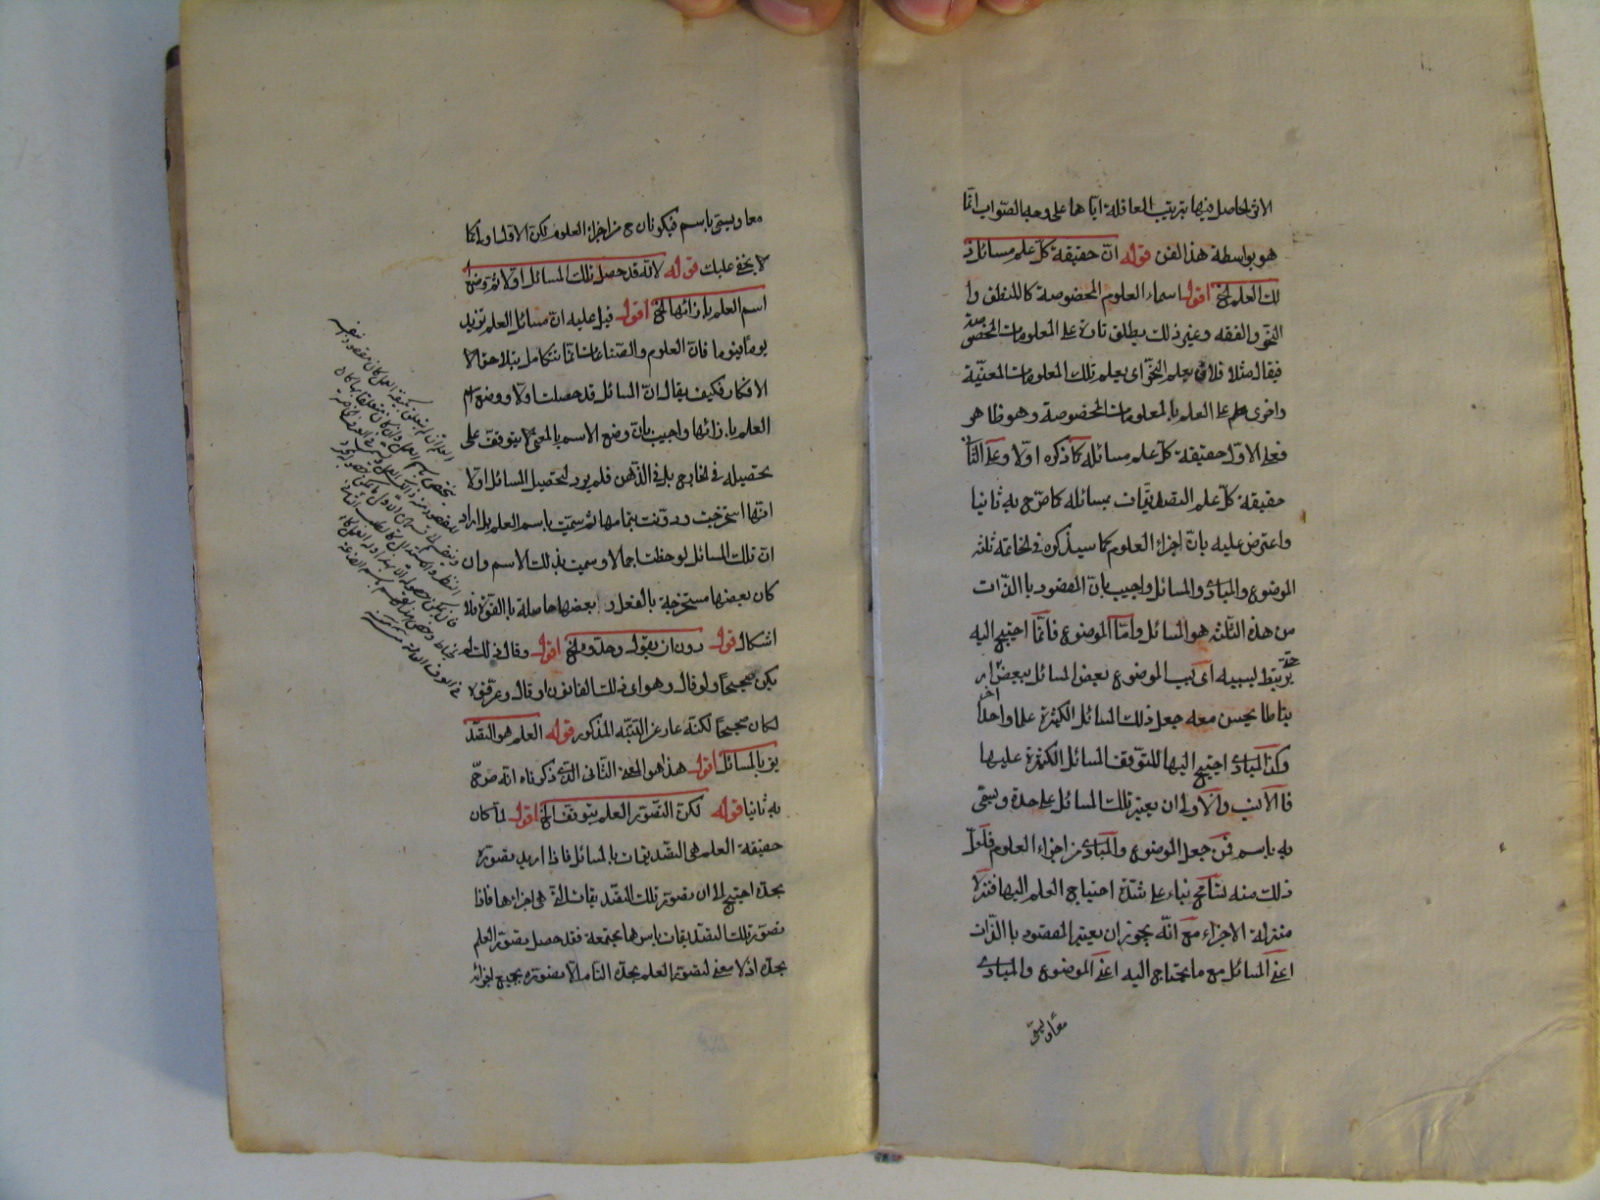 الاتى الحاصل فيها بترتيب العاقلة اياها على وجه الصواب انما
هو بواسطة هذا الفن قوله ان حقيقة كل علم مسائل ذ
لك العلم الخ اقول اسماء العلوم المخصوصة كالمنطق وا
لنحو والفقه وغير ذلك يطلق تارة على المعلومات المخصوصة
فيقال مثلا فلان يعلم النحو اى يعلم تلك المعلومات المعينة
واخرى على العلم بالمعلومات المخصوصة وهو ظاهر
فعلى الاول حقيقة كل علم مسائله كما ذكره اولا وعلى الثانى
حقيقة كل علم التصديقات بمسائله كما صرح به ثانيا
واعترض عليه بان اجزاء العلوم كما سيذكره فى الخاتمة ثلثة
الموضوع والمبادى والمسائل واجيب بان المقصود بالذات
من هذه الثلثة هو المسائل واما الموضوع فانما احتيج اليه
يرتبط بسببه اى بسبب الموضوع بعض المسائل ببعض ار
تباطا يحسن معه جعل ذلك المسائل الكثيرة علما واحدا
وكذا المبادى احتيج اليها للتوقف المسائل الكثيرة عليها
فالانسب والاولى ان يعتبر تلك المسائل على حدة ويسمى
به باسم فمن جعل الموضوع والمبادى من اجزاء العلوم فلعل
ذلك منه تسامح بناء على شدة احتياج العلم اليها فنزلا
منزلة الاجزاء مع انه يجوز ان يعتبر المقصود بالذات
اعنى المسائل مع ما يحتاج اليه اعنى الموضوع والمبادى
معا ويسمى
معا ويسمى باسم فيكونان ح من اجزاء العلوم لكن الاول اولى كما
لا يخفى عليك قوله لانه قد حصل تلك المسائل اولا ثم وضع
اسم العلم بازائها الخ اقول قيل عليه ان مسائل العلم تزيد
يوما فيوما فان العلوم والصناعات انما تتكامل بتلاحق الا
الافكار فكيف يقال ان المسائل قد حصلت اولا ووضع اسم
العلم بازائها واجيب بان وضع الاسم بالمعنى لا يتوقف على
تحصيله فى الخارج بل فى الذهن فلم يرد لتحصيل المسائل اولا
انها استخرجت ودونت بتمامها ثم سميت باسم العلم بل اراد
ان تلك المسائل لوحظت اجمالا وسميت بذلك الاسم وان
كان بعضها مستخرجة بالفعل و بعضها حاصلة بالقوة فلا
اشكال قوله دون ان يقول وحدوه الخ اقول وقال ذلك لم
يكن صحيحا ولو قال وهو اى ذلك القانون او قال وعرفوه
لكان صحيحا لكنه عار عن التنبه المذكور قوله العلم هو التصد
يق بالمسائل اقول هذا هو المعنى الثانى الذى ذكرناه انه صرح
به ثانيا قوله لكن التصور العلم يتوقف الخ اقول لما كان
حقيقة العلم هى التصديقات بالمسائل فاذا اريد تصوره
بحده احتيج الى ان تصور تلك التصديقات التى هى اجزاءها فاذا
تصور تلك التصديقات باسرها مجتمعة فقد حصل تصور العلم
بحده اذ لا معنى لتصور العلم بحده التام الا تصوره بجميع اجزائه